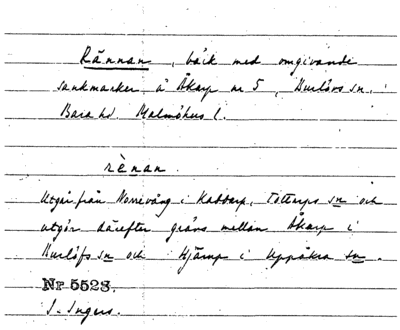 Rännan, bäck med omgivande
sankmarker å Åkarp nr 5, Burlövs sn.
Bara hd. Malmöhus l.
rènan.
Utgår från Norrevång i Kabbarp, Tottarps sn och
utgör därefter gräns mellan Åkarp i
Burlöfs sn och Hjärup i Uppåkra sn.
Nr 5528.
I. Ingers.